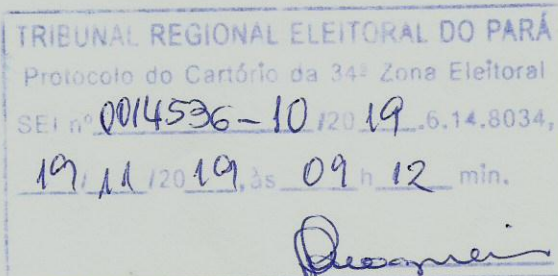 TRIBUNAL REGIONAL ELEITORAL DO PARÁ
Protocolo do Cartório da 34ª Zona Eleitoral
SEI nº 0014536-10/2019.6.14.8034,
19/11/2019, às 09 h 12 min.